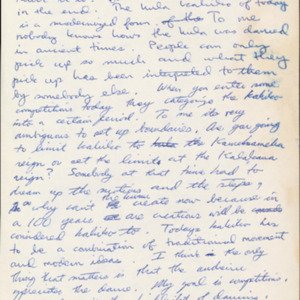 in the end. The hula kahiko of today
is a modernized form To me
nobody knows how the hula was danced
in ancient times. People can only
pick up so much and what they
pick up has been interpeted to them
by somebody else. When you enter some
competitions today they categorize the kahiko
into a certain period. To me its very
ambiguous to set up boundaries. Are you going
to limit kahiko to the Kamehameha
reign or set the limits at the Kalakaua
reign? Somebody at that time had to
dream up the motions and the steps,
why can't the hula create now because in
a 100 years are creations will be
considered kahiko too. Todays kahiko has
to be a combination of traditional movement
and modern ideas
I think is the only
they that matters is that the audience
appreciates the dance. My goal is competitions